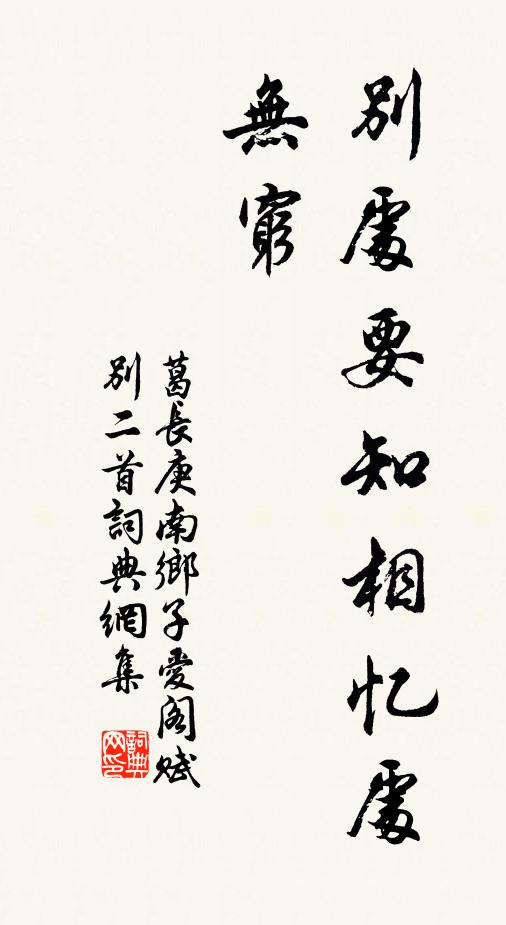 別處要知相忆處
無窮
葛長庚南鄉子愛阁赋
別二首詞典網集
詞典
网印